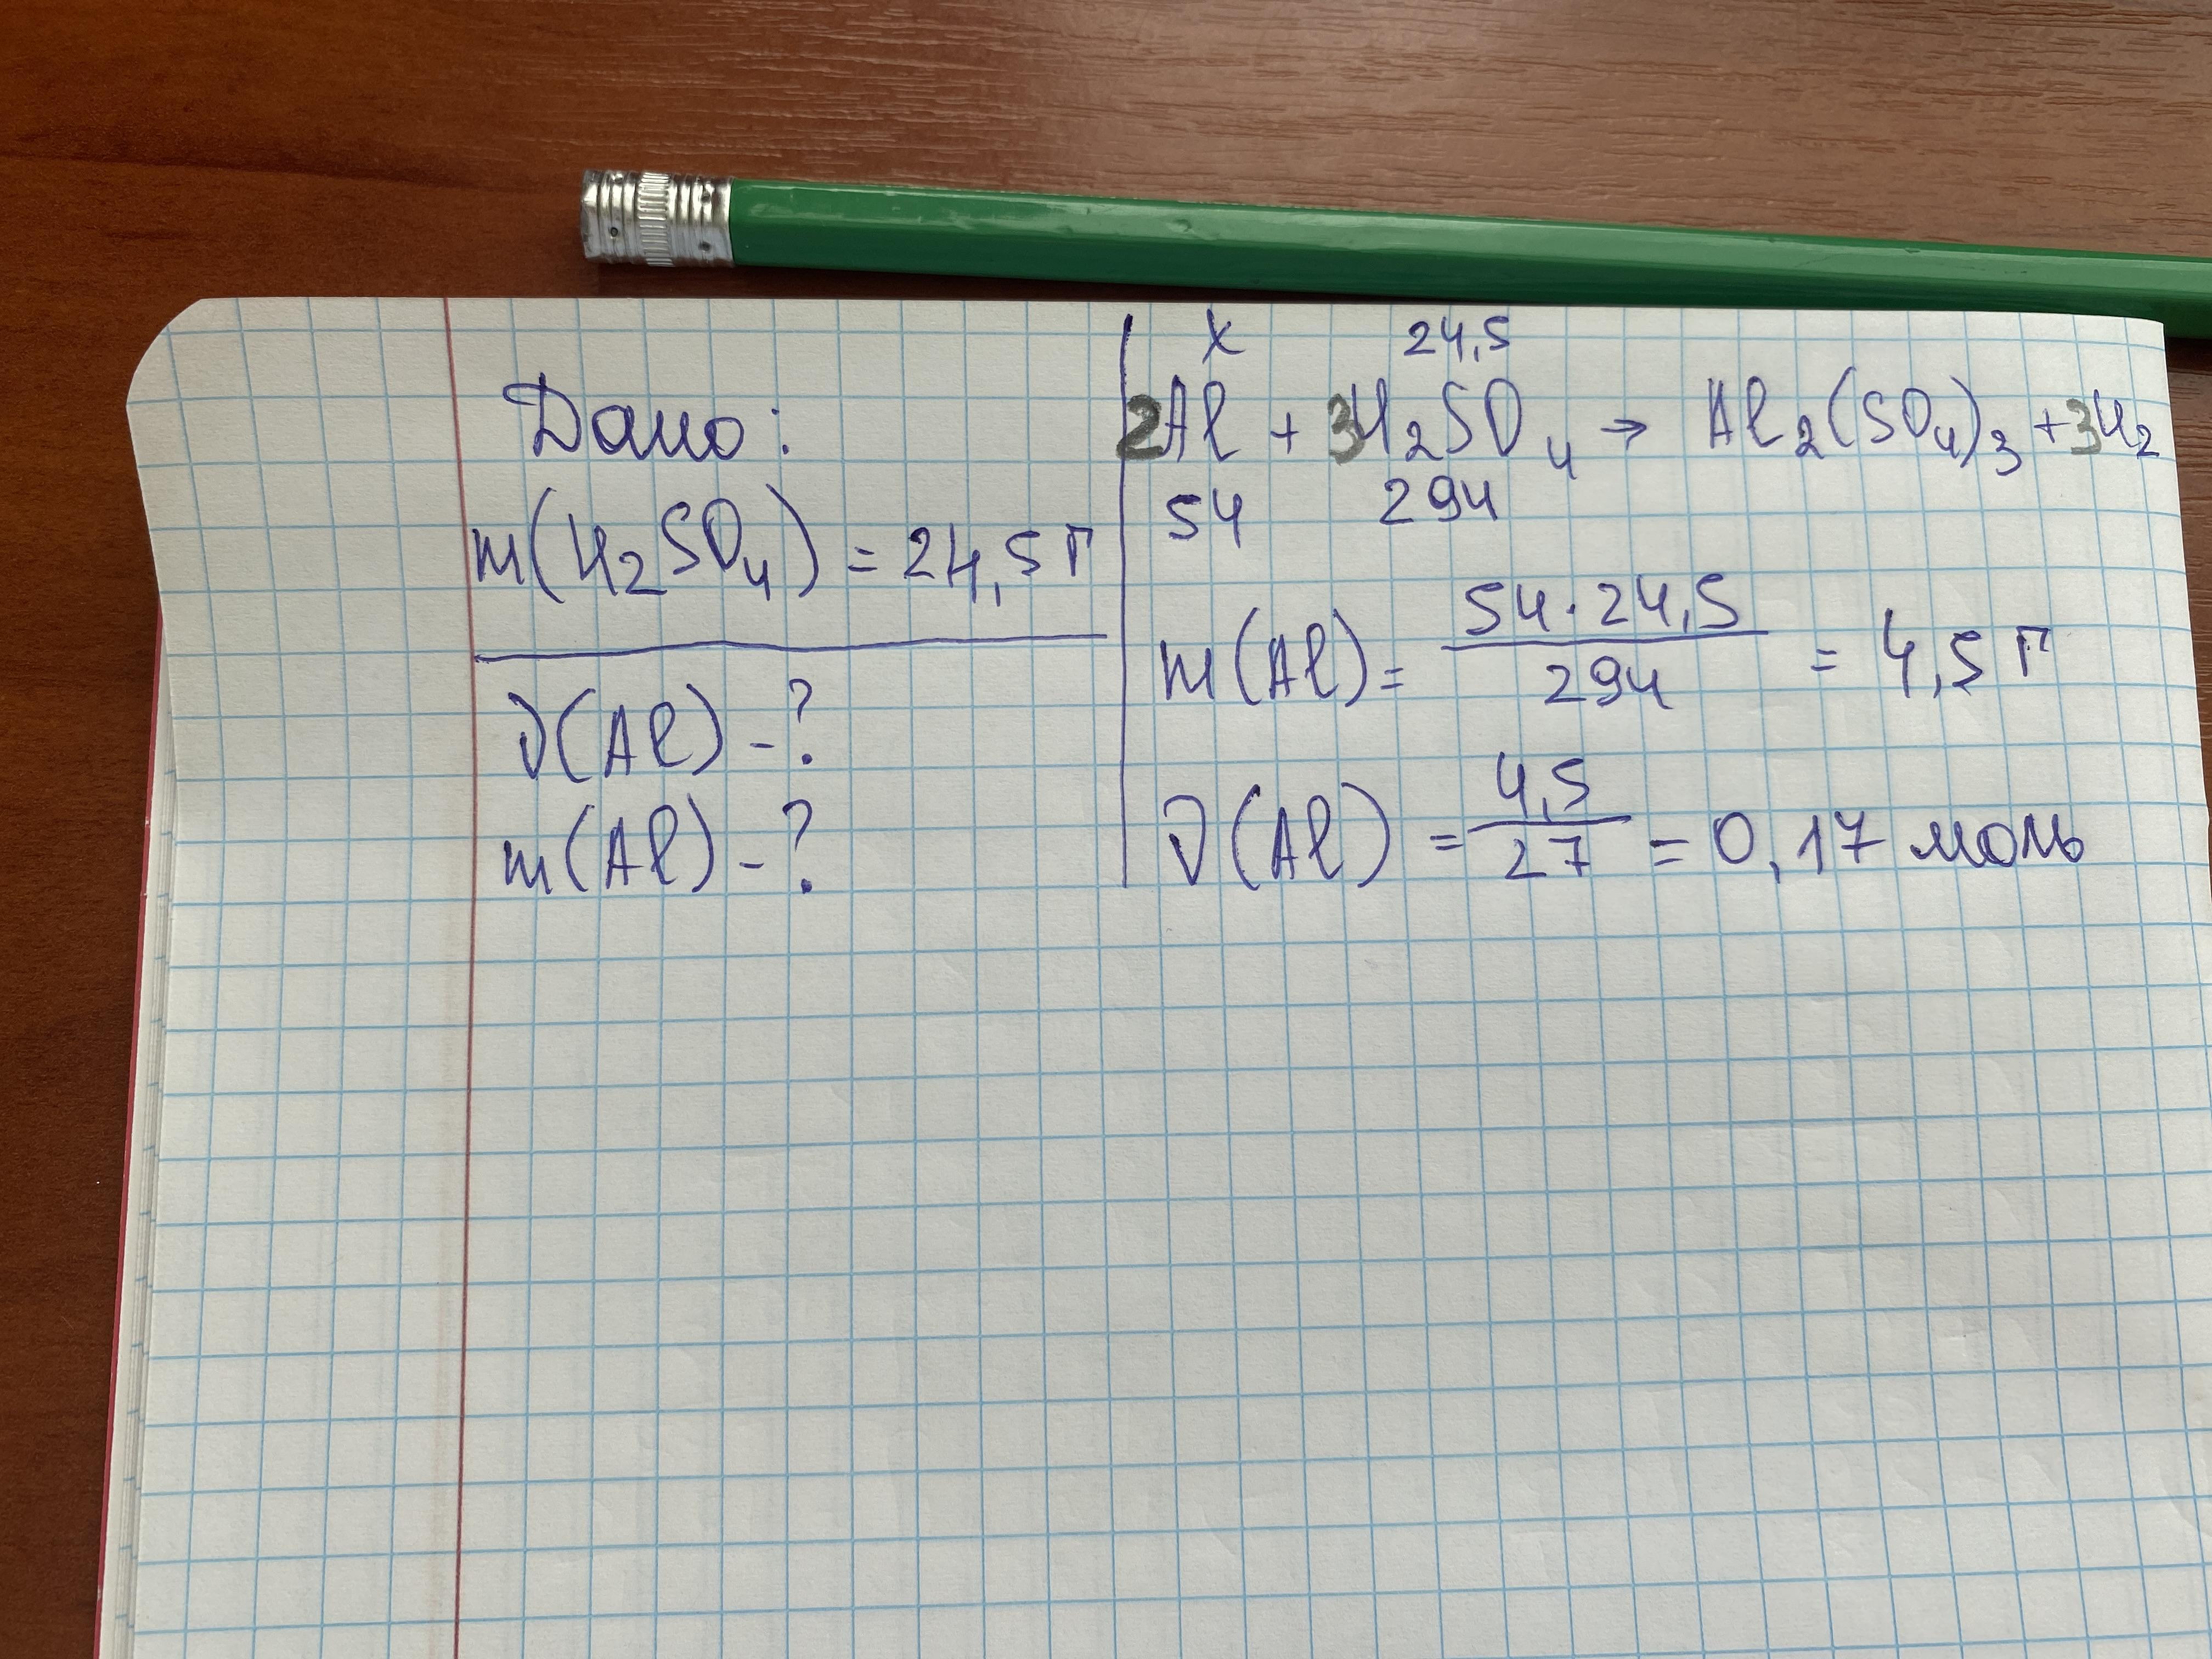 Дано:
m(H₂SO₄) = 24,5 г
ν(Al) - ?
m(Al) - ?
x 24,5
2Al + 3H₂SO₄ → Al₂(SO₄)₃ + 3H₂
54 294
m(Al) = 54 · 24,5 / 294 = 4,5 г
ν(Al) = 4,5 / 27 = 0,17 моль